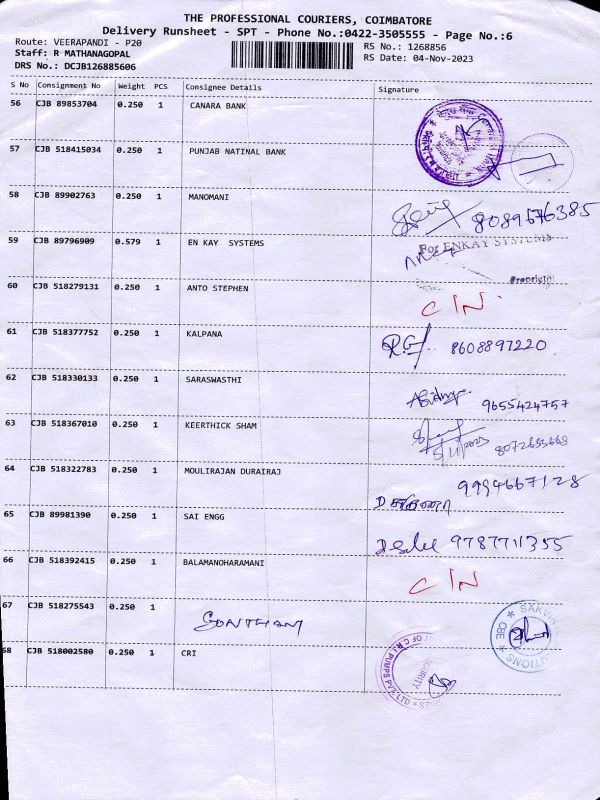 THE PROFESSIONAL COURIERS, COIMBATORE
Delivery Runsheet - SPT - Phone No.:0422-3505555 - Page No.:6
Route: VEERAPANDI - P20 RS No.: 1268856
Staff: R MATHANAGOPAL RS Date: 04-Nov-2023
DRS No.: DCJB126885606
S No Consignment No Weight PCS Consignee Details Signature
56 CJB 89853704 0.250 1 CANARA BANK
57 CJB 518415034 0.250 1 PUNJAB NATINAL BANK
58 CJB 89902763 0.250 1 MANOMANI 8089676385
59 CJB 89796909 0.579 1 EN KAY SYSTEMS For ENKAY SYSTEMS
60 CJB 518279131 0.250 1 ANTO STEPHEN C IN.
61 CJB 518377752 0.250 1 KALPANA 8608897220
62 CJB 518330133 0.250 1 SARASWASTHI 9655424757
63 CJB 518367010 0.250 1 KEERTHICK SHAM
64 CJB 518322783 0.250 1 MOULIRAJAN DURAIRAJ 9994667128
65 CJB 89981390 0.250 1 SAI ENGG 9787711355
66 CJB 518392415 0.250 1 BALAMANOHARAMANI C IN
67 CJB 518275543 0.250 1
68 CJB 518002580 0.250 1 CRI